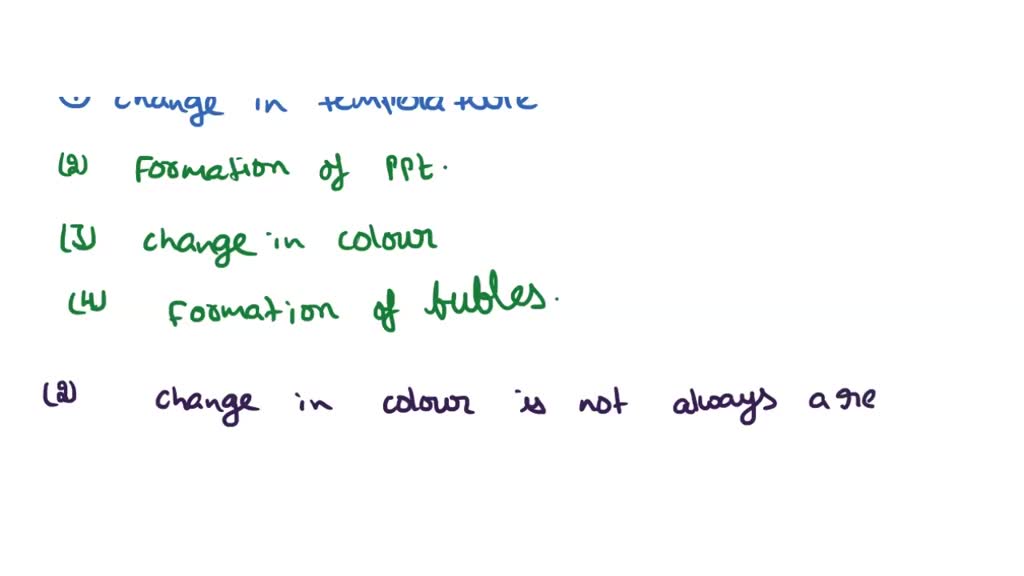 (1) change in temperature
(2) Formation of PPt.
(3) change in colour
(4) Formation of bubles.
(2) change in colour is not always a re